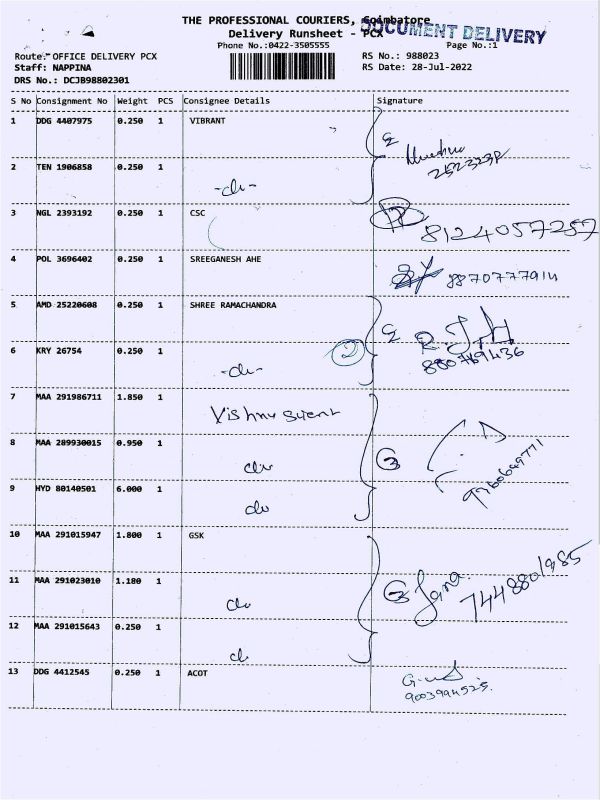 THE PROFESSIONAL COURIERS, Coimbatore
Delivery Runsheet - PCX
DOCUMENT DELIVERY
Phone No.:0422-3505555 Page No.:1
Route: OFFICE DELIVERY PCX RS No.: 988023
Staff: NAPPINA RS Date: 28-Jul-2022
DRS No.: DCJB98802301
S No Consignment No Weight PCS Consignee Details Signature
1 DDG 4407975 0.250 1 VIBRANT
2 TEN 1906858 0.250 1
3 NGL 2393192 0.250 1 CSC 8124057257
4 POL 3696402 0.250 1 SREEGANESH AHE 8870777914
5 AMD 25220608 0.250 1 SHREE RAMACHANDRA
6 KRY 26754 0.250 1 2 880769436
7 MAA 291986711 1.850 1
8 MAA 289930015 0.950 1
9 HYD 80140501 6.000 1 do
10 MAA 291015947 1.800 1 GSK
11 MAA 291023010 1.180 1 7448801985
12 MAA 291015643 0.250 1
13 DDG 4412545 0.250 1 ACOT
9003994525.